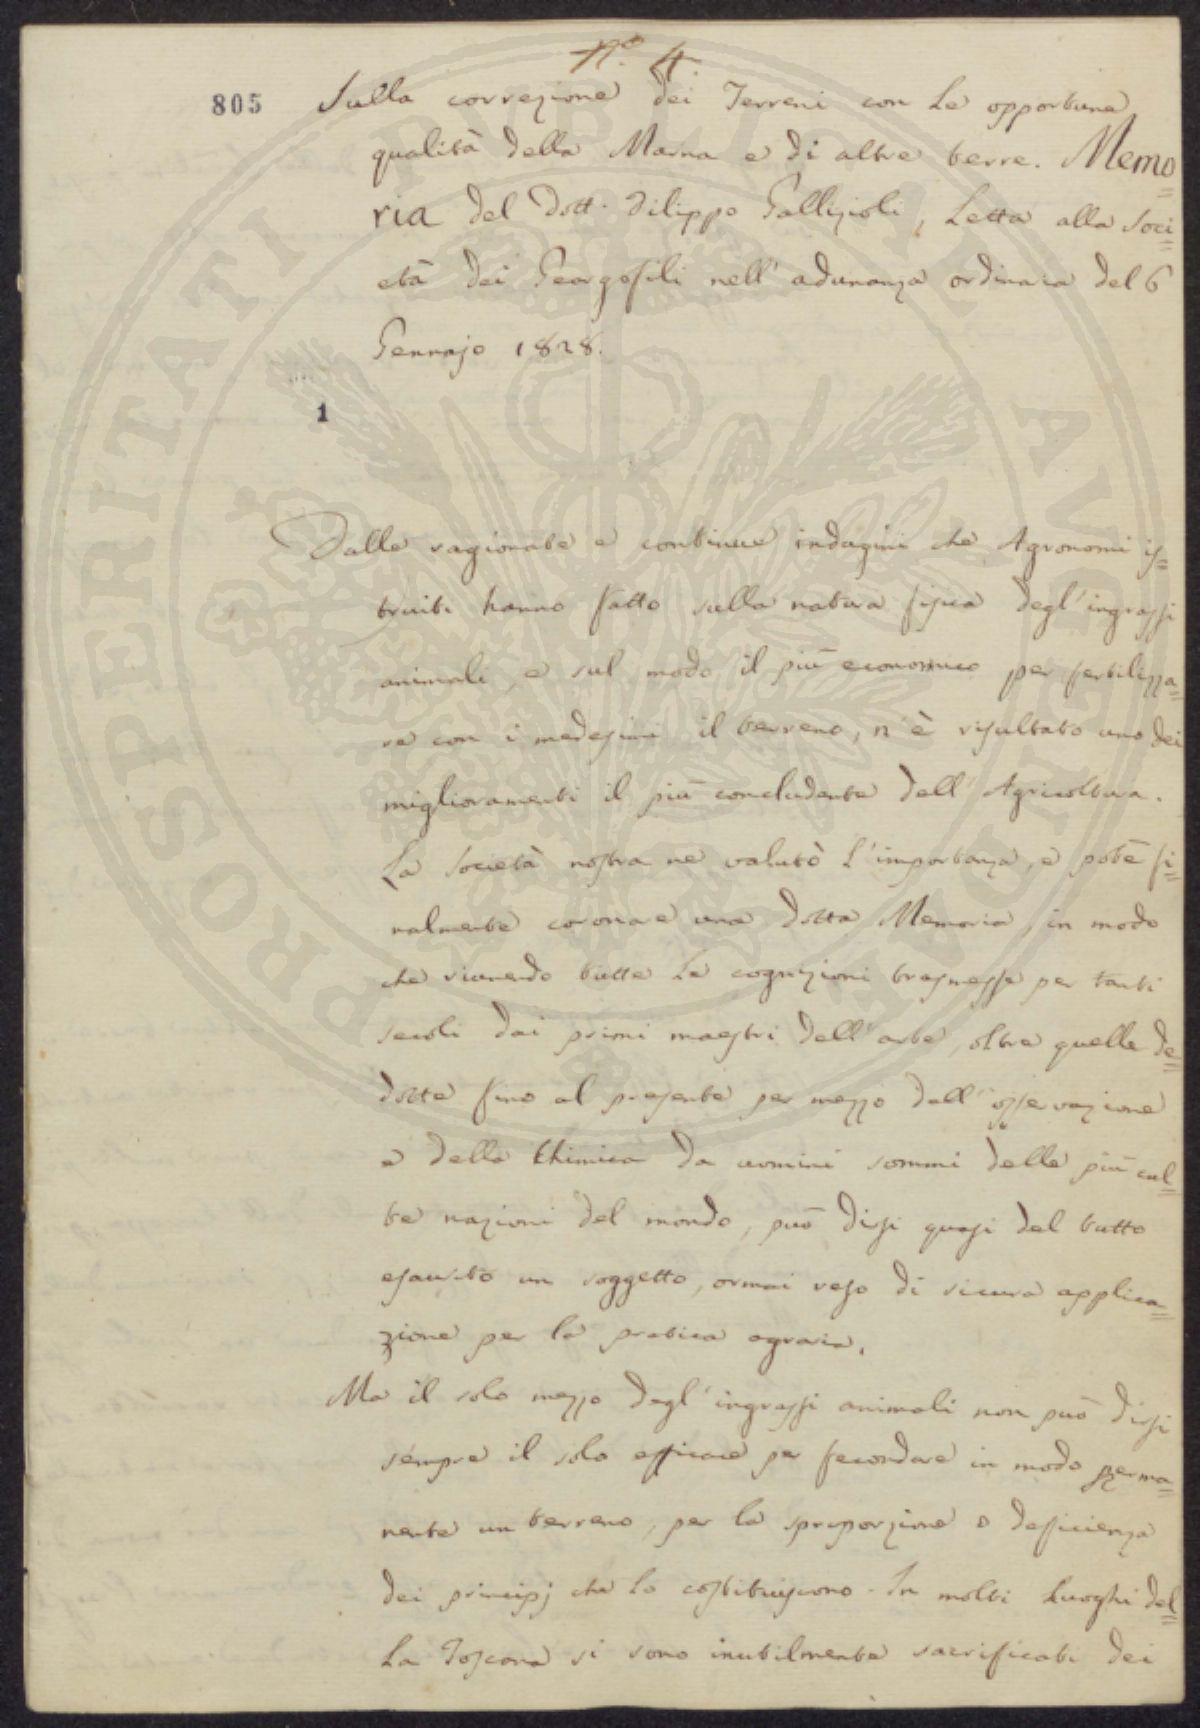 N.° 4
805
Sulla correzione dei Terreni con le opportune
qualità della Marna e di altre terre. Memo=
ria del Dott. Filippo Gallizioli, Letta alla Soci=
età dei Georgofili nell' adunanza ordinaria del 6
Gennajo 1828.
1
Dalle ragionate e continue indagini che Agronomi is=
truiti hanno fatto sulla natura fisica degl' ingrassi
animali, e sul modo il più economico per fertilizza=
re con i medesimi il terreno, n' è risultato uno dei
miglioramenti il più concludente dell' Agricoltura.
La Società nostra ne valutò l' importanza, e potè fi=
nalmente coronare una dotta Memoria, in modo
che riunendo tutte le cognizioni trasmesse per tanti
secoli dai primi maestri dell' arte, oltre quelle de=
dotte fino al presente per mezzo dell' osservazione
e della Chimica da uomini sommi delle più cul=
te nazioni del mondo, può dirsi quasi del tutto
esaurito un soggetto, ormai reso di sicura applica=
zione per la pratica agraria.
Ma il solo mezzo degl' ingrassi animali non può dirsi
sempre il solo efficace per fecondare in modo perma=
nente un terreno, per la sproporzione o deficienza
dei principj che lo costituiscono. In molti luoghi del=
la Toscana si sono inutilmente sacrificati dei
PROSPERITATI PUBLICAE AUGENDAE